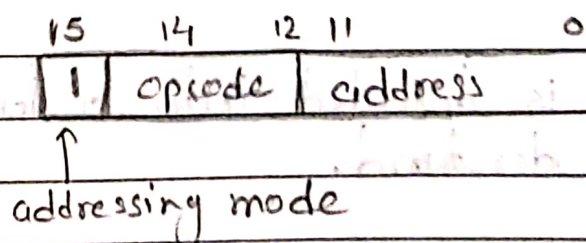 15 14 12 11 0
1 opcode address
addressing mode